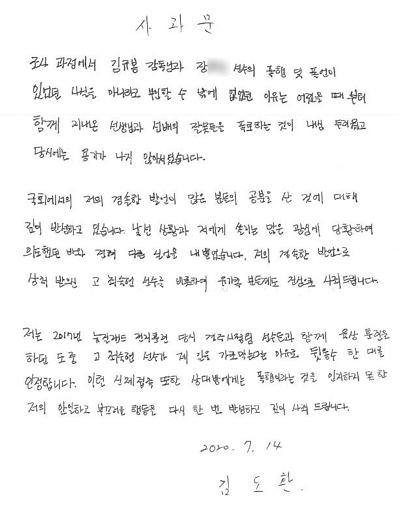 사 과 문
조사 과정에서 김규봉 감독님과 장 선수의 폭행 및 폭언이
있었던 사실을 아니라고 부인할 수 밖에 없었던 이유는 어렸을 때 부터
함께 지내온 선생님과 선배의 잘못들을 폭로하는 것이 내심 두려웠고
당시에는 용기가 나지 않아서였습니다.
국회에서의 저의 경솔한 발언이 많은 분들의 공분을 산 것에 대해
깊이 반성하고 있습니다. 낯선 상황과 저에게 쏠리는 많은 관심에 당황하여
의도했던 바와 전혀 다른 실언을 내뱉었습니다. 저의 경솔한 발언으로
상처 받으신 고 최숙현 선수를 비롯하여 유가족 분들께도 진심으로 사죄드립니다.
저는 2017년 뉴질랜드 전지훈련 당시 경주시청팀 선수들과 함께 육상 훈련을
하던 도중 고 최숙현 선수가 제 길을 가로막는다는 이유로 뒷통수 한 대를
인정합니다. 이런 신체접촉 또한 상대방에게는 폭행이라는 것을 인지하지 못한
저의 안일하고 부끄러운 행동을 다시 한 번 반성하고 깊이 사죄 드립니다.
2020. 7. 14
김 도 환.